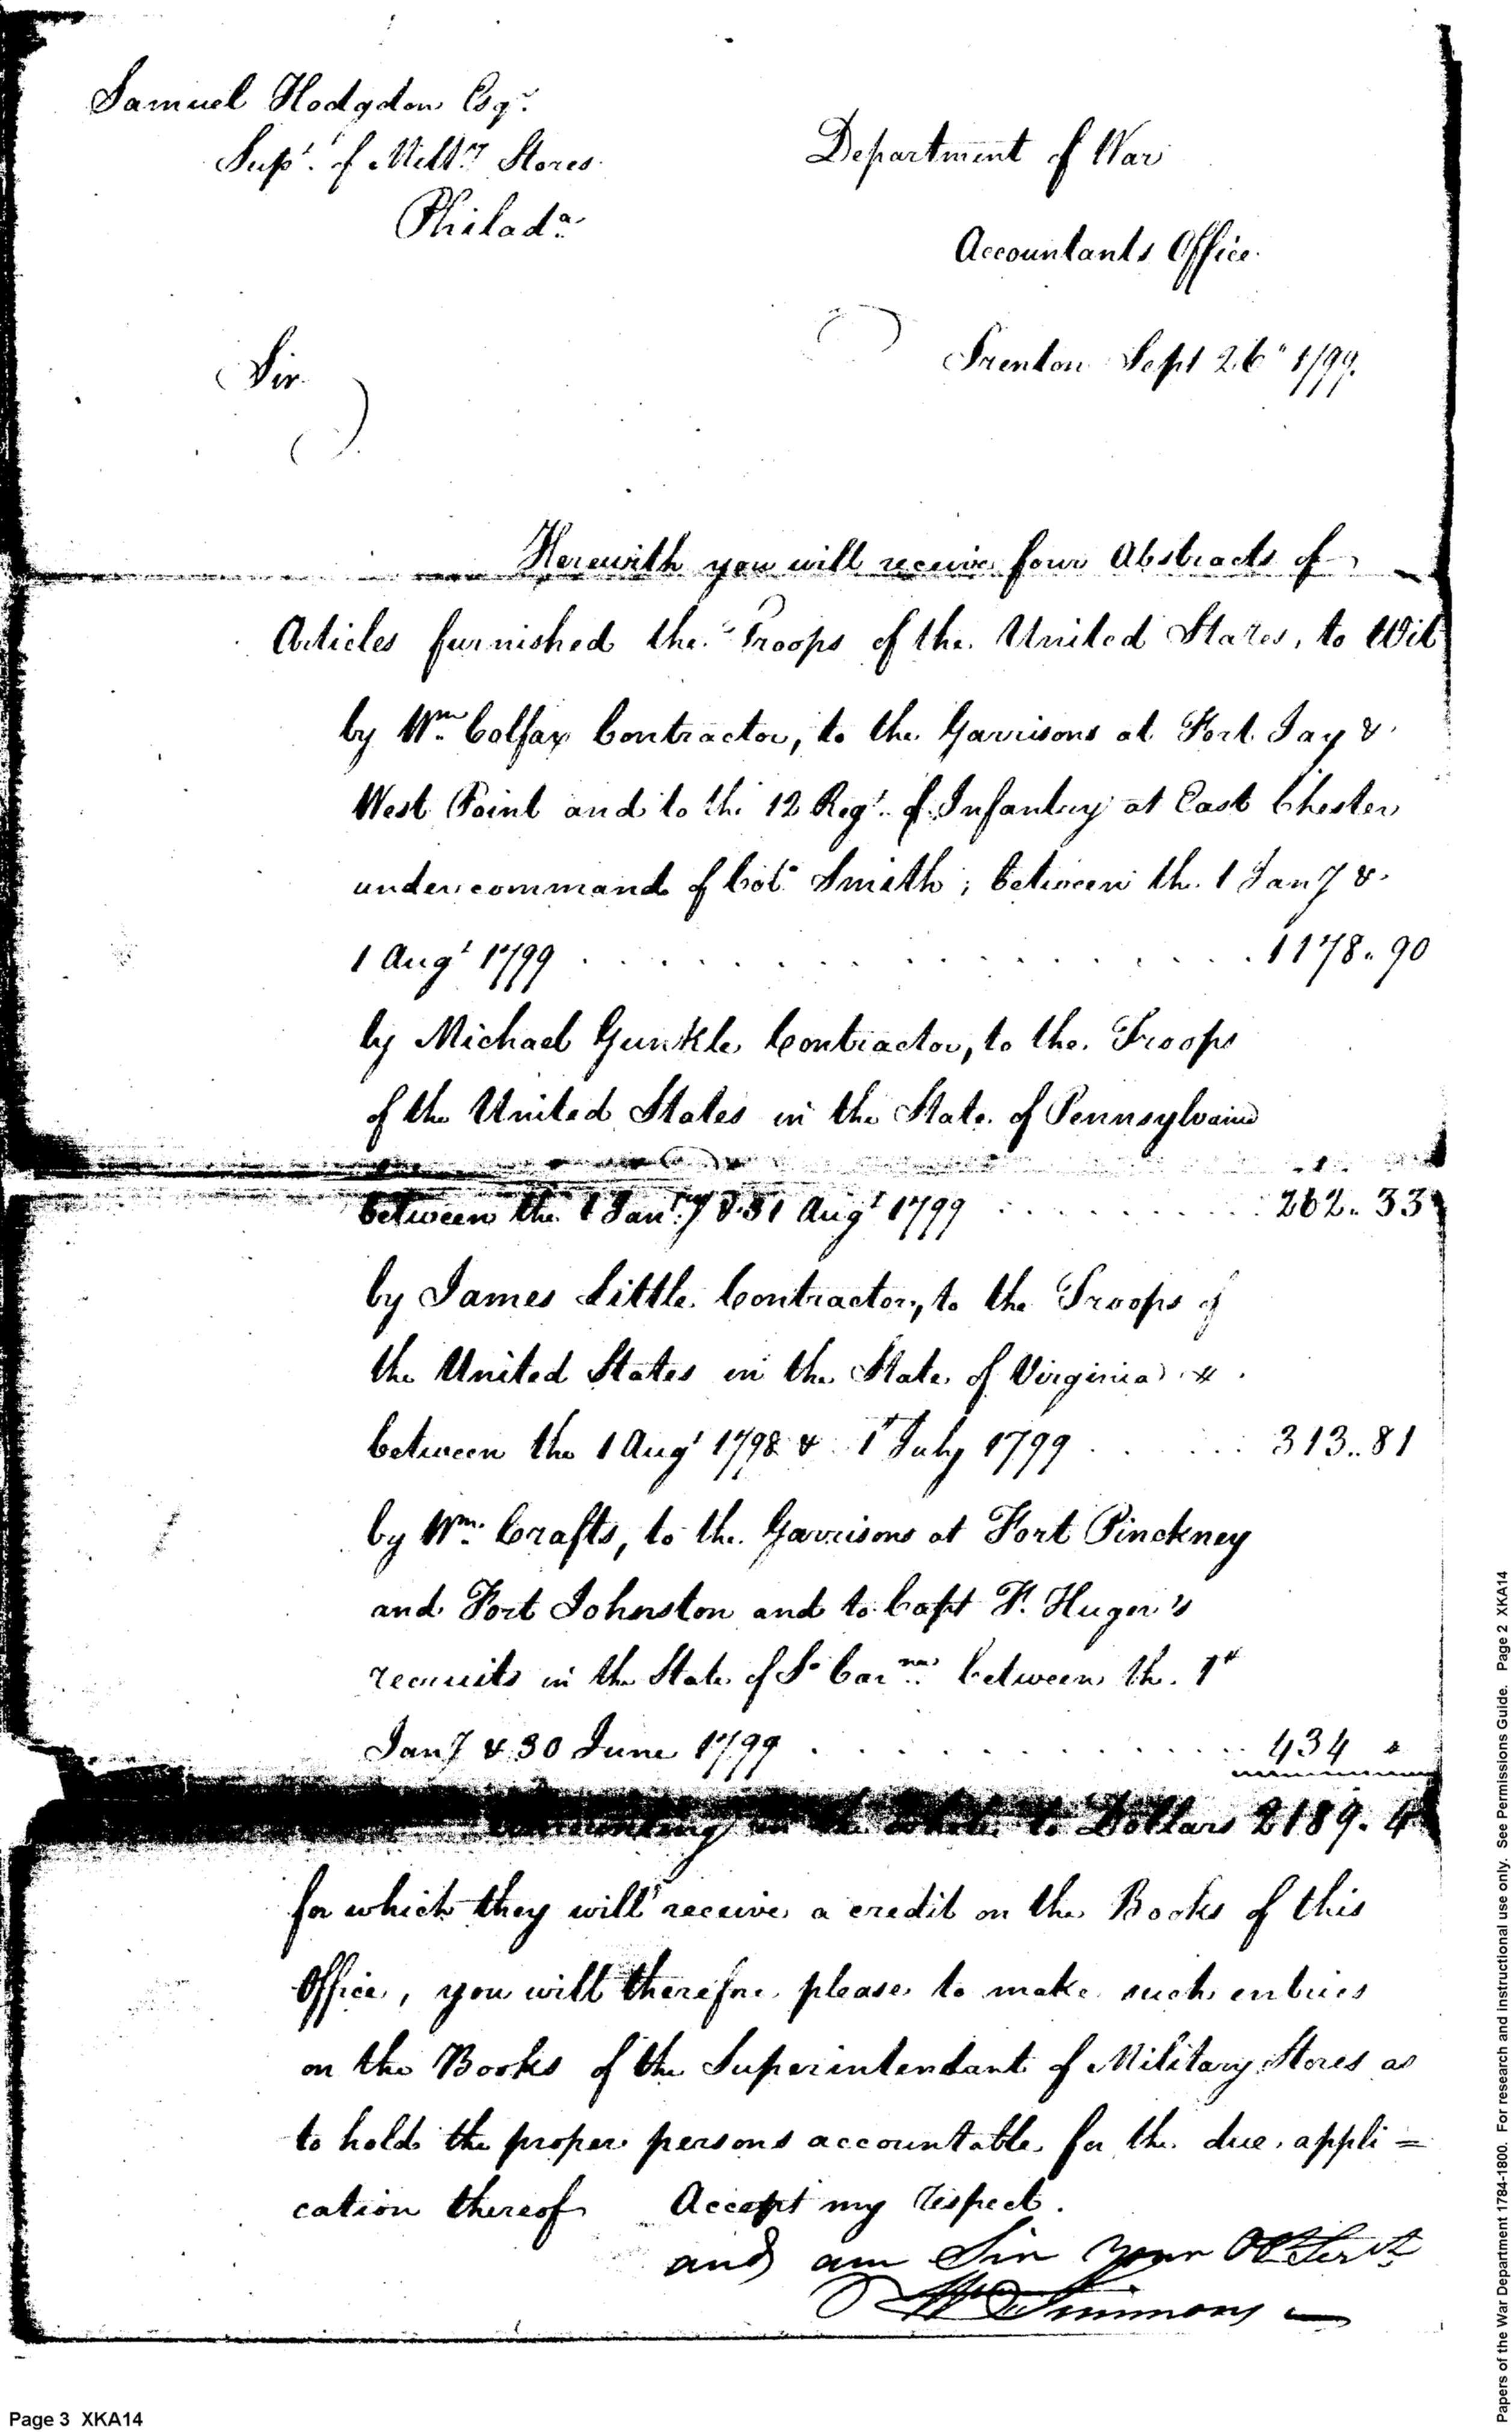 Samuel Hodgdon Esqr.
Supt. of Milty Stores
Philada.
Department of War
Accountants Office
Trenton Sept 26" 1799.
Sir
Herewith you will receive four Abstracts of
Articles furnished the Troops of the United States, to Wit
by Wm. Colfax Contractor, to the Garrisons at Fort Jay &
West Point and to the 12 Regt. of Infantry at East Chester
under command of Colo. Smith; between the 1 Jany &
1 Augt 1799 . . . . . . . . . . . . . . . . . . 1178.90
by Michael Gunkle Contractor, to the Troops
of the United States in the State of Pennsylvania
between the 1 Jany & 31 Augt 1799 . . . . . . . . . . 262.33
by James Little Contractor, to the Troops of
the United States in the State of Virginia
between the 1 Augt 1798 & 1st July 1799 . . . . . . 313..81
by Wm. Crafts, to the Garrisons at Fort Pinckney
and Fort Johnston and to Capt F. Huger's
recruits in the State of So Carna. between the 1st
Jany & 30 June 1799 . . . . . . . . . . . . . 434 "
amounting in the whole to Dollars 2189.4
for which they will receive a credit on the Books of this
Office, you will therefore please to make such entries
on the Books of the Superintendant of Military Stores as
to hold the proper persons accountable for the due appli=
cation thereof Accept my respect.
and am Sir Your Ob Servt
Wm Simmons
Page 3 XKA14
Papers of the War Department 1784-1800. For research and instructional use only. See Permissions Guide. Page 2 XKA14